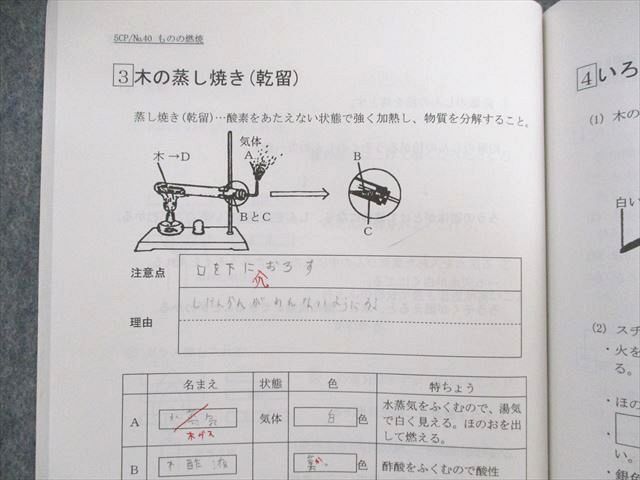 5CP/No.40 ものの燃焼
3 木の蒸し焼き(乾留)
蒸し焼き(乾留)…酸素をあたえない状態で強く加熱し、物質を分解すること。
木→D
気体
A
BとC
B
C
注意点
口を下におろす
理由
しけんかんがわれないようにする
名まえ 状態 色 特ちょう
A 木ガス 気体 白 色 水蒸気をふくむので、湯気
で白く見える。ほのおを出
して燃える。
B 木酢液 色 酢酸をふくむので酸性
4 いろ
(1) 木の
白い
(2) スチ
・火を
る。
・ほの
い。
・銀色